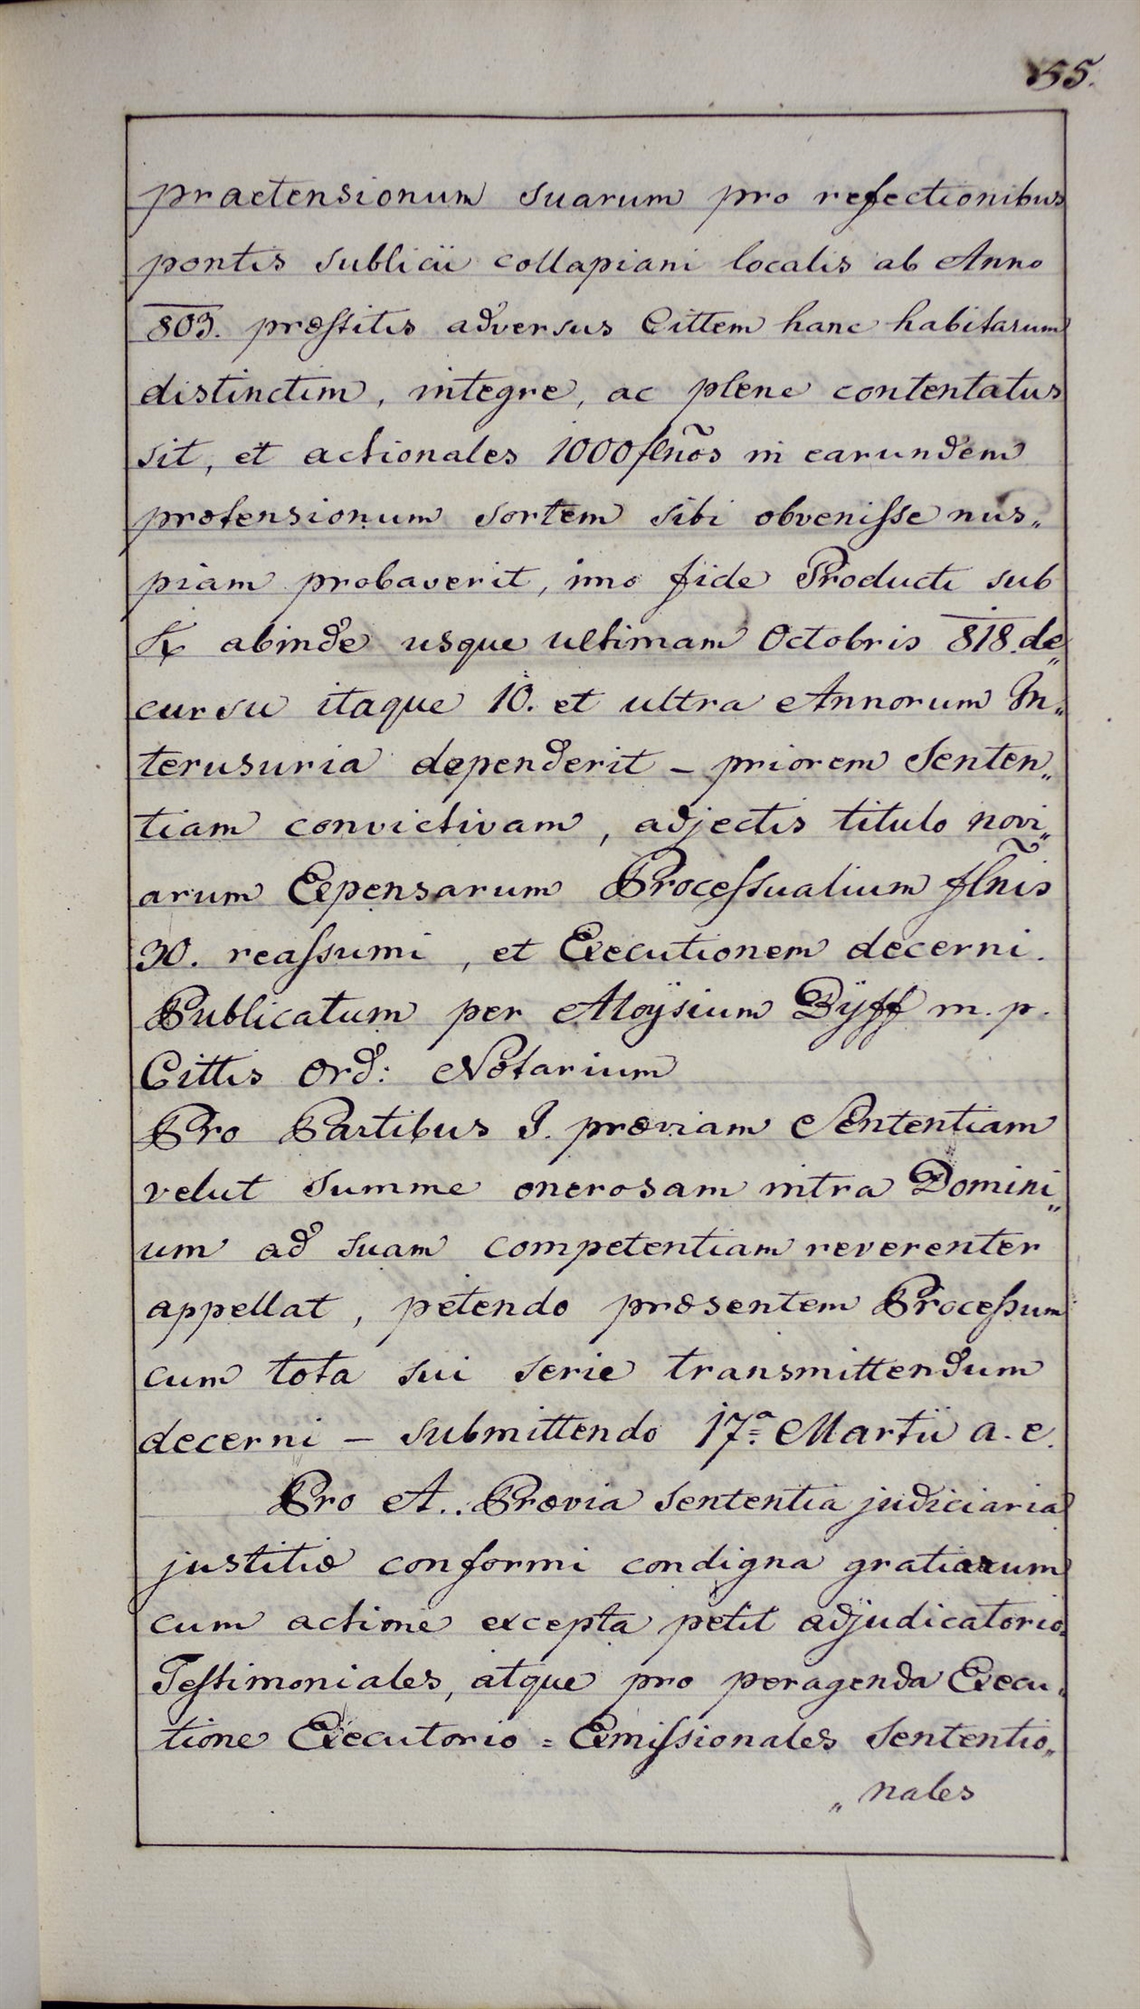 55.
praetensionum suarum pro refectionibus
pontis sublicii collapiani localis ab Anno
803. præstitis adversus Cittem hanc habitarum
distinctim, integre, ac plene contentatus
sit, et actionales 1000 flnõs in earundem
prætensionum sortem sibi obvenisse nus„
piam probaverit, imo fide Producti sub
K abinde usque ultimam Octobris 818. de„
cursu itaque 10. et ultra Annorum In„
terusuria dependerit – priorem Senten„
tiam convictivam, adjectis titulo novi„
arum Expensarum Processualium flñis
30. reassumi, et Executionem decerni.
Publicatum per Aloÿsium Dÿff m. p.
Cittis Ord: Notarium
Pro Partibus J. præviam Sententiam
velut summe onerosam intra Domini„
um ad suam competentiam reverenter
appellat, petendo præsentem Processum
cum tota sui serie transmittendum
decerni – submittendo 17ª Martii a. c.
Pro A.. Prævia sententia judiciaria
justitiæ conformi condigna gratiarum
cum actione excepta petit adjudicatorio=
Testimoniales, atque pro peragenda Execu„
tione Executorio = Emissionales Sententio„
„ nales